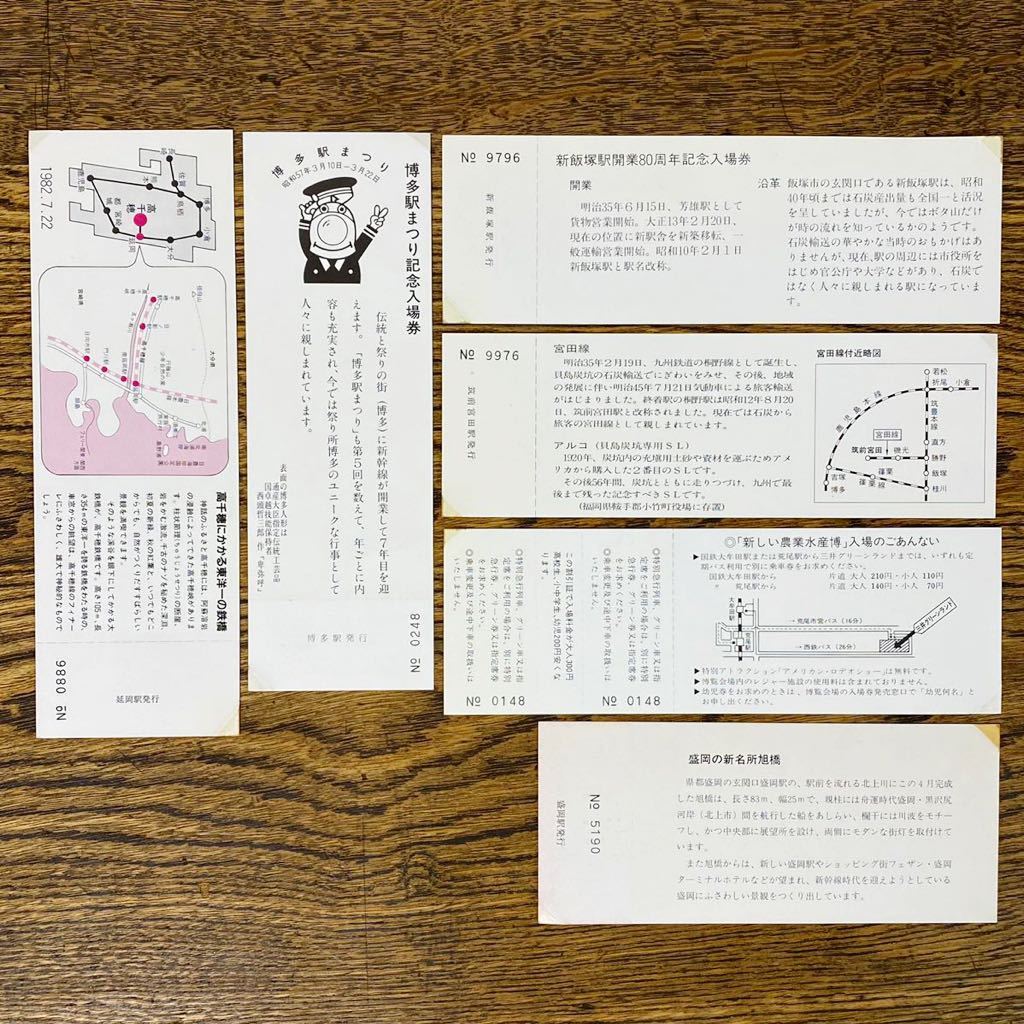 1982.7.22
長崎
佐賀
鳥栖
博多
小倉
大分
延岡
高千穂
宮崎
都城
鹿児島
熊本
宮崎県
大分県
高千穂にかかる東洋一の鉄橋
神話のふるさと高千穂には、阿蘇溶岩
の浸蝕によってできた高千穂峡がありま
す。柱状節理(ちゅうじょうせつり)の断崖、
岩をかむ激流、千古のナゾを秘めた深淵。
初夏の新緑、秋の紅葉と、いつでもどこ
からでも、自然がつくりだすすばらしい
景観を満喫できます。
そのような深谷を眼下にしてかかる大
鉄橋が、高千穂鉄橋です。高さ105m、長
さ354mの東洋一を誇る鉄橋をわたる時の、
車窓からの眺望は、高千穂線のフィナー
レにふさわしく、雄大で神秘的なもので
しょう。
№ 0886
延岡駅発行
博多駅まつり記念入場券
博多駅まつり
昭和57年3月10日―3月22日
伝統と祭りの街(博多)に新幹線が開業して7年目を迎
えます。「博多駅まつり」も第5回を数えて、年ごとに内
容も充実され、今では祭り所博多のユニークな行事として
人々に親しまれています。
表面の博多人形は
通産大臣指定伝統工芸品
国卓越技能保持者
西頭哲三郎 作
№ 0248
博多駅発行
№ 9796
新飯塚駅発行
新飯塚駅開業80周年記念入場券
開業
明治35年6月15日、芳雄駅として
貨物営業開始。大正13年2月20日、
現在の位置に新駅舎を新築移転、一
般運輸営業開始。昭和10年2月1日
新飯塚駅と駅名改称。
沿革 飯塚市の玄関口である新飯塚駅は、昭和
40年頃までは石炭産出量も全国一と活況
を呈していましたが、今ではボタ山だけ
が時の流れを知っているかのようです。
石炭輸送の華やかな当時のおもかげはあ
りませんが、現在、駅の周辺には市役所を
はじめ官公庁や大学などがあり、石炭で
はなく人々に親しまれる駅になっていま
す。
№ 9976
筑前宮田駅発行
宮田線
明治35年2月19日、九州鉄道の桐野線として誕生し、
貝島炭坑の石炭輸送でにぎわいをみせ、その後、地域
の発展に伴い明治45年7月21日気動車による旅客輸送
がはじまりました。終着駅の桐野駅は昭和12年8月20
日、筑前宮田駅と改称されました。現在では石炭から
旅客の宮田線として親しまれています。
アルコ(貝島炭坑専用SL)
1920年、炭坑内の充塡用土砂や資材を運ぶためアメ
リカから購入した2番目のSLです。
その後56年間、炭坑とともに走りつづけ、九州で最
後まで残った記念すべきSLです。
(福岡県鞍手郡小竹町役場に存置)
宮田線付近略図
若松
折尾
小倉
鹿児島本線
筑豊本線
宮田線
直方
筑前宮田
磯光
勝野
篠栗
飯塚
吉塚
篠栗線
桂川
博多
◎「新しい農業水産博」入場のごあんない
▶国鉄大牟田駅または荒尾駅から三井グリーンランドまでは、いずれも定
期バス利用で別に乗車券をお求めください。
国鉄大牟田駅から 片道 大人 210円・小人 110円
〃 荒尾駅から 片道 大人 140円・小人 70円
大牟田駅
荒尾駅
荒尾市営バス(16分)
西鉄バス(26分)
三井グリーンランド
▶特別アトラクション「アメリカン・ロデオショー」は無料です。
▶博覧会場内のレジャー施設の使用料は含まれておりません。
▶幼児券をお求めのときは、博覧会場の入場券発売窓口で「幼児何名」と
お申し出ください。
◎特別急行列車、グリーン車又は指
定席をご利用の場合は、別に特別
急行券、グリーン券又は指定席券
をお求めください。
◎乗車変更及び途中下車の取扱いは
いたしません。
この割引証で入場料金が大人300円
高校生、小・中学生、幼児200円安くな
ります。
◎特別急行列車、グリーン車又は指
定席をご利用の場合は、別に特別
急行券、グリーン券又は指定席券
をお求めください。
◎乗車変更及び途中下車の取扱いは
いたしません。
№ 0148
№ 0148
盛岡駅発行
№ 5190
盛岡の新名所旭橋
県都盛岡の玄関口盛岡駅の、駅前を流れる北上川にこの4月完成
した旭橋は、長さ83m、幅25mで、親柱には舟運時代盛岡・黒沢尻
河岸(北上市)間を航行した船をあしらい、欄干には川波をモチー
フし、かつ中央部に展望所を設け、両側にモダンな街灯を取付けて
います。
また旭橋からは、新しい盛岡駅やショッピング街フェザン・盛岡
ターミナルホテルなどが望まれ、新幹線時代を迎えようとしている
盛岡にふさわしい景観をつくり出しています。